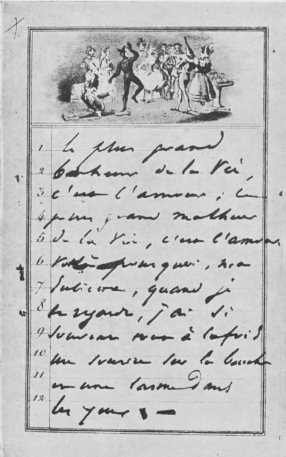 1 Le plus grand
2 bonheur de la vie,
3 c'est l'amour; le
4 plus grand malheur
5 de la vie, c'est l'amour
6 voilà pourquoi, ma
7 quand je
8 regarde, j'ai si
9 souvent à la fois
10 un sourire sur la bouche
11 et une larme dans
12 les yeux